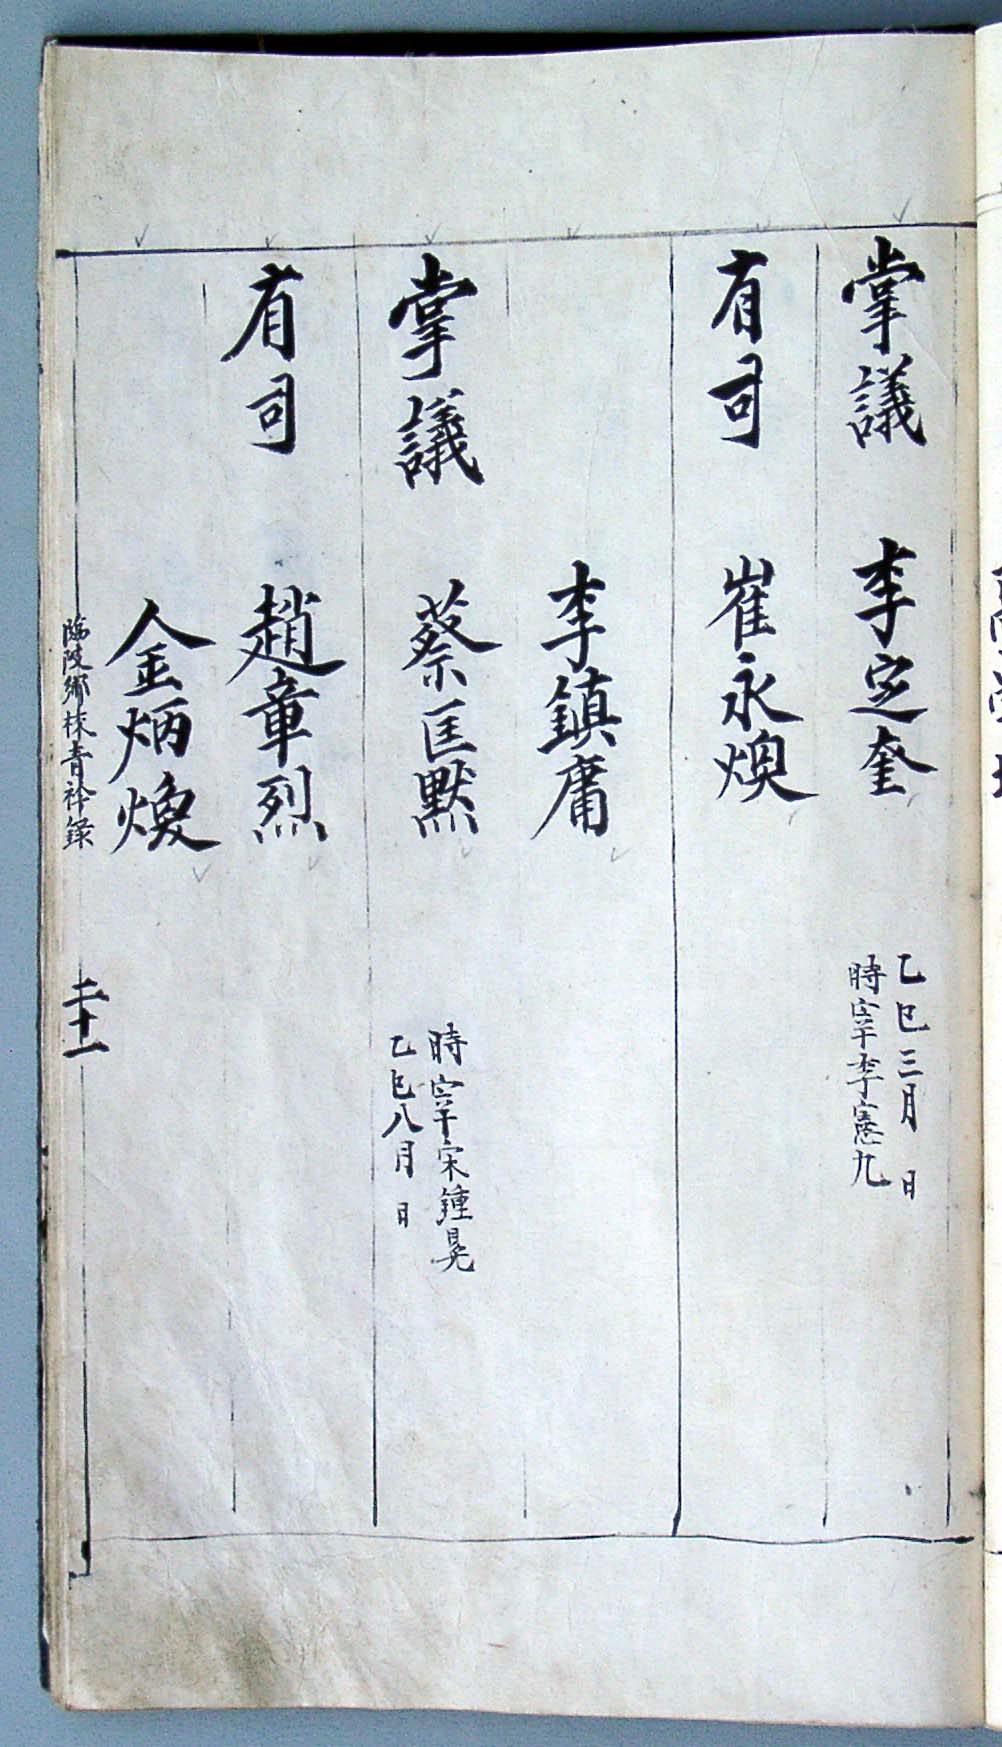 掌議 李定奎 乙巳三月 日
時宰李憲九
有司 崔永燠
李鎮庸
掌議 蔡匡默 時宰宋鍾晃
乙巳八月 日
有司 趙章烈
金炳煥
臨陂鄉校青衿錄 二十一